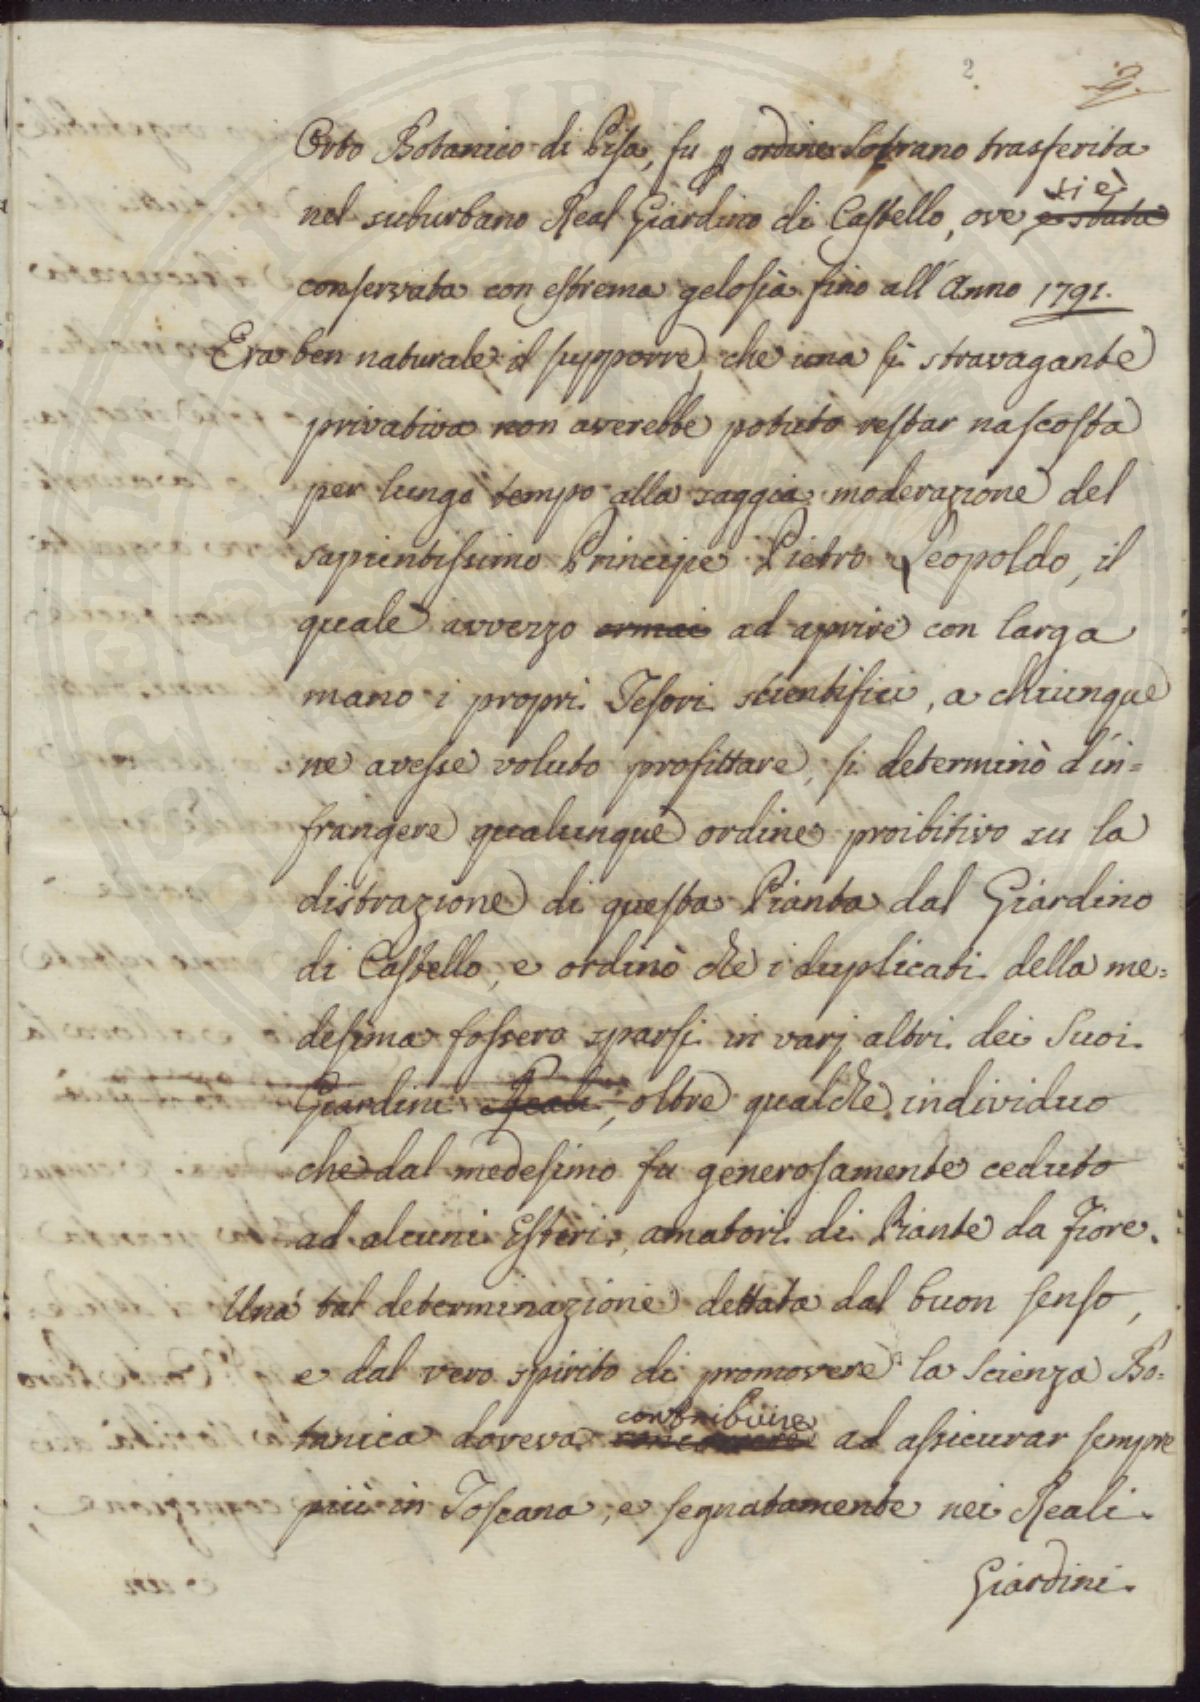 2
2.
Orto Botanico di Pisa, fu p ordine Sovrano trasferita
si è
nel suburbano Real Giardino di Castello, ove è stata
conservata con estrema gelosìa fino all'Anno 1791.
Era ben naturale il supporre, che una sì stravagante
privativa non averebbe potuto restar nascosta
per lungo tempo alla saggia moderazione del
sapientissimo Principe Pietro Leopoldo, il
quale avvezzo ormai ad aprire con larga
mano i proprj Tesori scientifici, a chiunque
ne avesse voluto profittare, si determinò d'in=
frangere qualunque ordine proibitivo su la
distrazione di questa Pianta dal Giardino
di Castello, e ordinò che i duplicati della me=
desima fossero sparsi in varj altri dei Suoi
Giardini Reali, oltre qualche individuo
che dal medesimo fu generosamente ceduto
ad alcuni Esteri, amatori di Piante da Fiore.
Una tal determinazione dettata dal buon senso,
e dal vero spirito di promovere la Scienza Bo=
contribuire
tanica doveva concorrere ad assicurar sempre
più in Toscana, e segnatamente nei Reali
Giardini